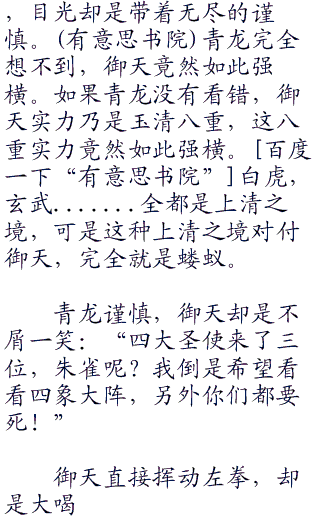 ，目光却是带着无尽的谨
慎。(有意思书院)青龙完全
想不到，御天竟然如此强
横。如果青龙没有看错，御
天实力乃是玉清八重，这八
重实力竟然如此强横。[百度
一下“有意思书院”]白虎，
玄武.......全都是上清之
境，可是这种上清之境对付
御天，完全就是蝼蚁。
青龙谨慎，御天却是不
屑一笑：“四大圣使来了三
位，朱雀呢？我倒是希望看
看四象大阵，另外你们都要
死！”
御天直接挥动左拳，却
是大喝